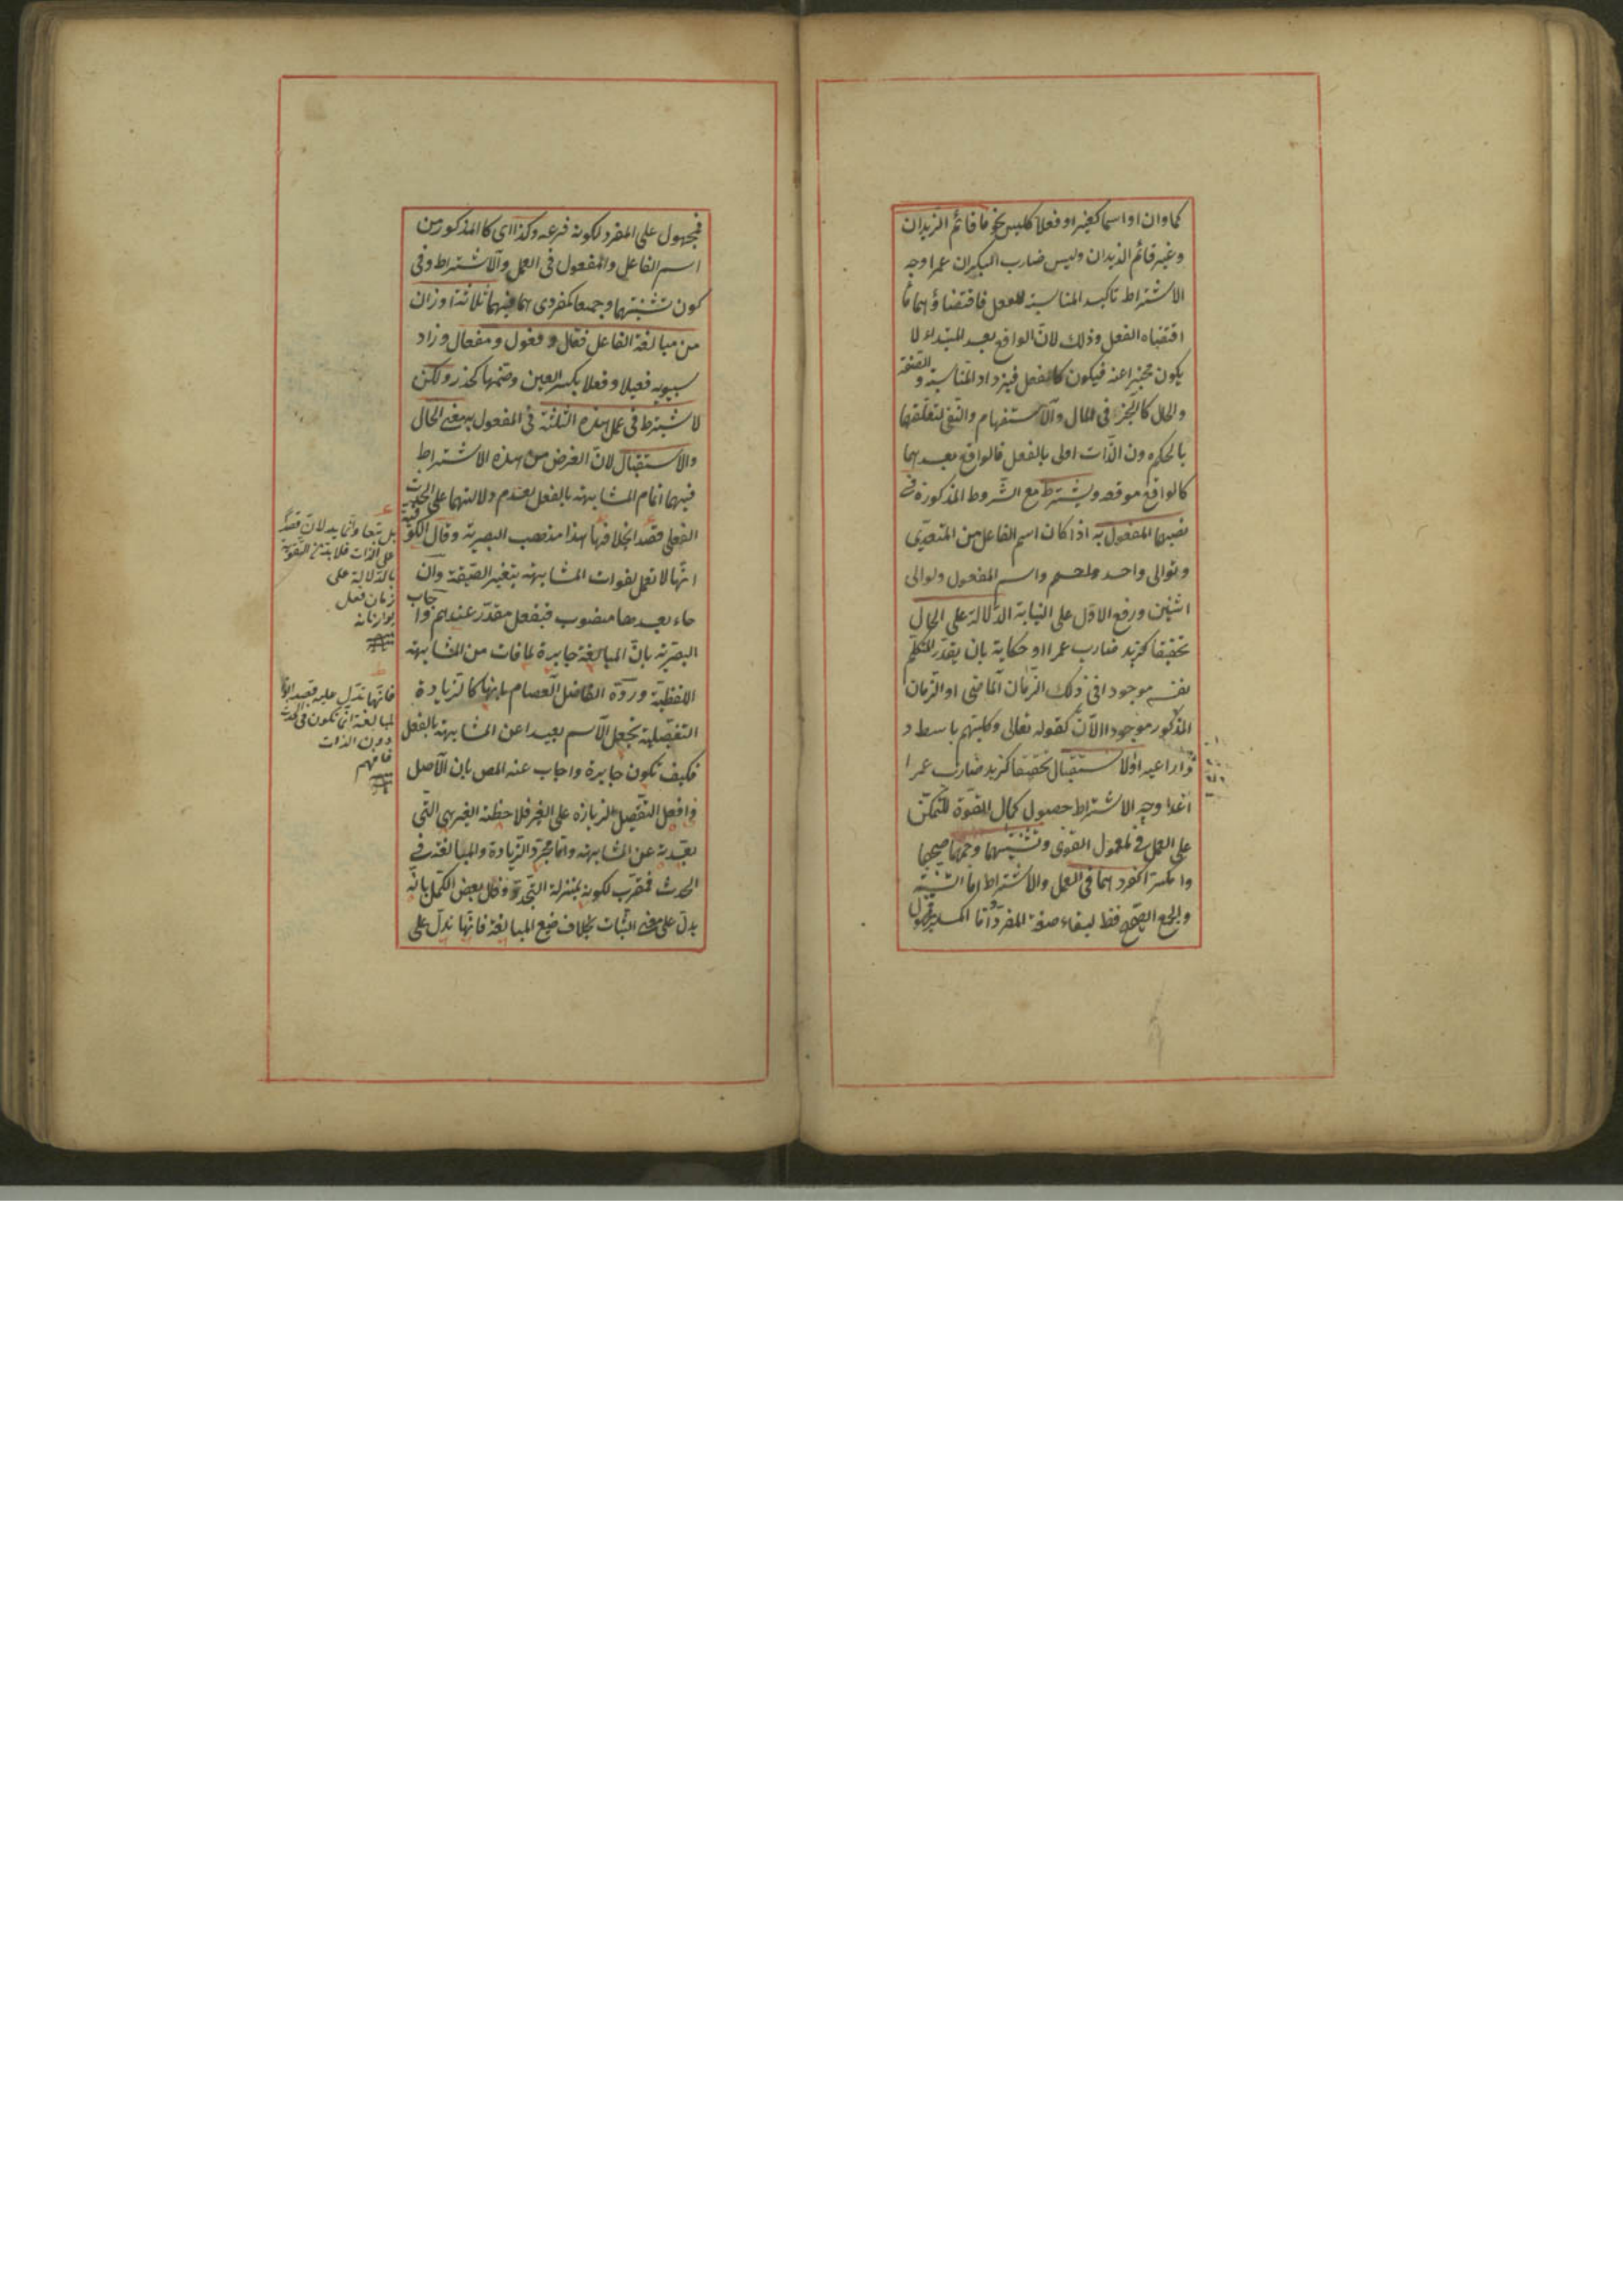 كما وان او اسما كغير او فعلا كليس نحو ما قائم الزيدان
وغير قائم الزيدان وليس ضارب البكران عمرا وجه
الاشتراط تاكيد المناسبة للفعل فاقتضاؤهما ما
اقتضاه الفعل وذلك لان الواقع بعد المبتدا لا
يكون مخبرا عنه فيكون كالفعل فيزداد المناسبة و الصفة
والحال كالخبر في المال والاستفهام والنفى لتعلقهما
بالحكم دون الذات اولى بالفعل فالواقع بعدهما
كالواقع موقعه ويشترط مع الشروط المذكورة فى
نصبهما المفعول به اذا كان اسم الفاعل من المتعدى
ولو الى واحد واسم المفعول ولو الى
اثنين ورفع الاول على النيابة الدلالة على الحال
تحقيقا كزيد ضارب عمرا او حكاية بان يقدر المتكلم
نفسه موجودا فى ذلك الزمان الماضى او الزمان
المذكور موجودا الآن كقوله تعالى وكلبهم باسط ذ
ذراعيه او الاستقبال تحقيقا كزيد ضارب عمرا
غدا وجه الاشتراط حصول كمال القوة للتمكن
على العمل في المعمول القوى وتثنيتهما وجمعهما صحيحا
او مكسرا كمفردهما فى العمل والاشتراط اما التثنية
والجمع الصحيح فقط لبقاء صيغة المفرد واما المكسر
فمحمول على المفرد لكونه فرعه وكذا اى كالمذكور من
اسم الفاعل والمفعول فى العمل والاشتراط وفى
كون تثنيتهما وجمعهما كمفردى هما فيهما ثلاثة اوزان
من مبالغة الفاعل فعّال و فعول ومفعال وزاد
سيبويه فعيلا وفعلا بكسر العين وضمها كحذر ولكن
لا يشترط فى عمل هذه الثلثة فى المفعول به معنى الحال
والاستقبال لان الغرض من هذه الاشتراط
فيهما اتمام المشابهة بالفعل لعدم دلالتهما على الحدث
الفعلى قصدا بخلافها هذا مذهب البصرية وقال الكوفية
انها لا تعمل لفوات المشابهة بتغير الصيغة وان
جاء بعدها منصوب فبفعل مقدر عندهم واجاب
البصرية بان المبالغة جابرة لما فات من المشابهة
اللفظية ورده الفاضل العصام بانها كالزيادة
التفضيلية تجعل الاسم بعيدا عن المشابهة بالفعل
فكيف تكون جابرة واجاب عنه المص بان الاصل
في افعل التفضيل الزيادة على الغير فلاحظة الغير هى التى
بعّدته عن المشابهة واما مجرد الزيادة والمبالغة فى
الحدث فمقرب لكونه بمنزلة التجدد وقال بعض الكمل بانه
يدل على معنى الثبات بخلاف صيغ المبالغة فانها تدل على
بل تبعا وانما يدلان قصدا
على الذات فلا بد من التقوية
بالدلالة على
زمان فعل
يوازنانه
فانها تدل عليه قصدا اذ
المبالغة انما تكون فى الحدث
دون الذات
فافهم